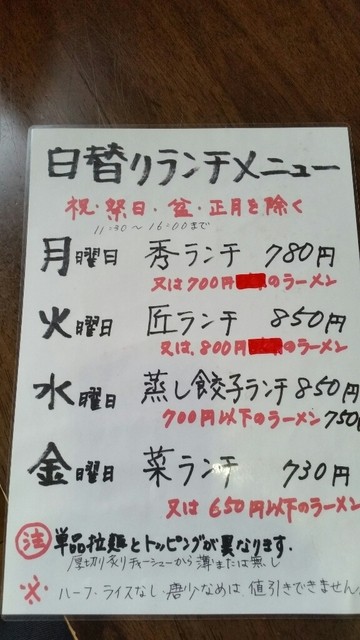 日替りランチメニュー
祝・祭日・盆・正月を除く
11:30〜16:00まで
月曜日 秀ランチ 780円
又は700円のラーメン
火曜日 匠ランチ 850円
又は、800円のラーメン
水曜日 蒸し餃子ランチ 850円
700円以下のラーメン 750
金曜日 菜ランチ 730円
又は 650円以下のラーメン
注 単品拉麺とトッピングが異なります。
厚切り炙りチャーシューから薄または無し
※ ハーフ・ライスなし・唐少なめは 値引きできません